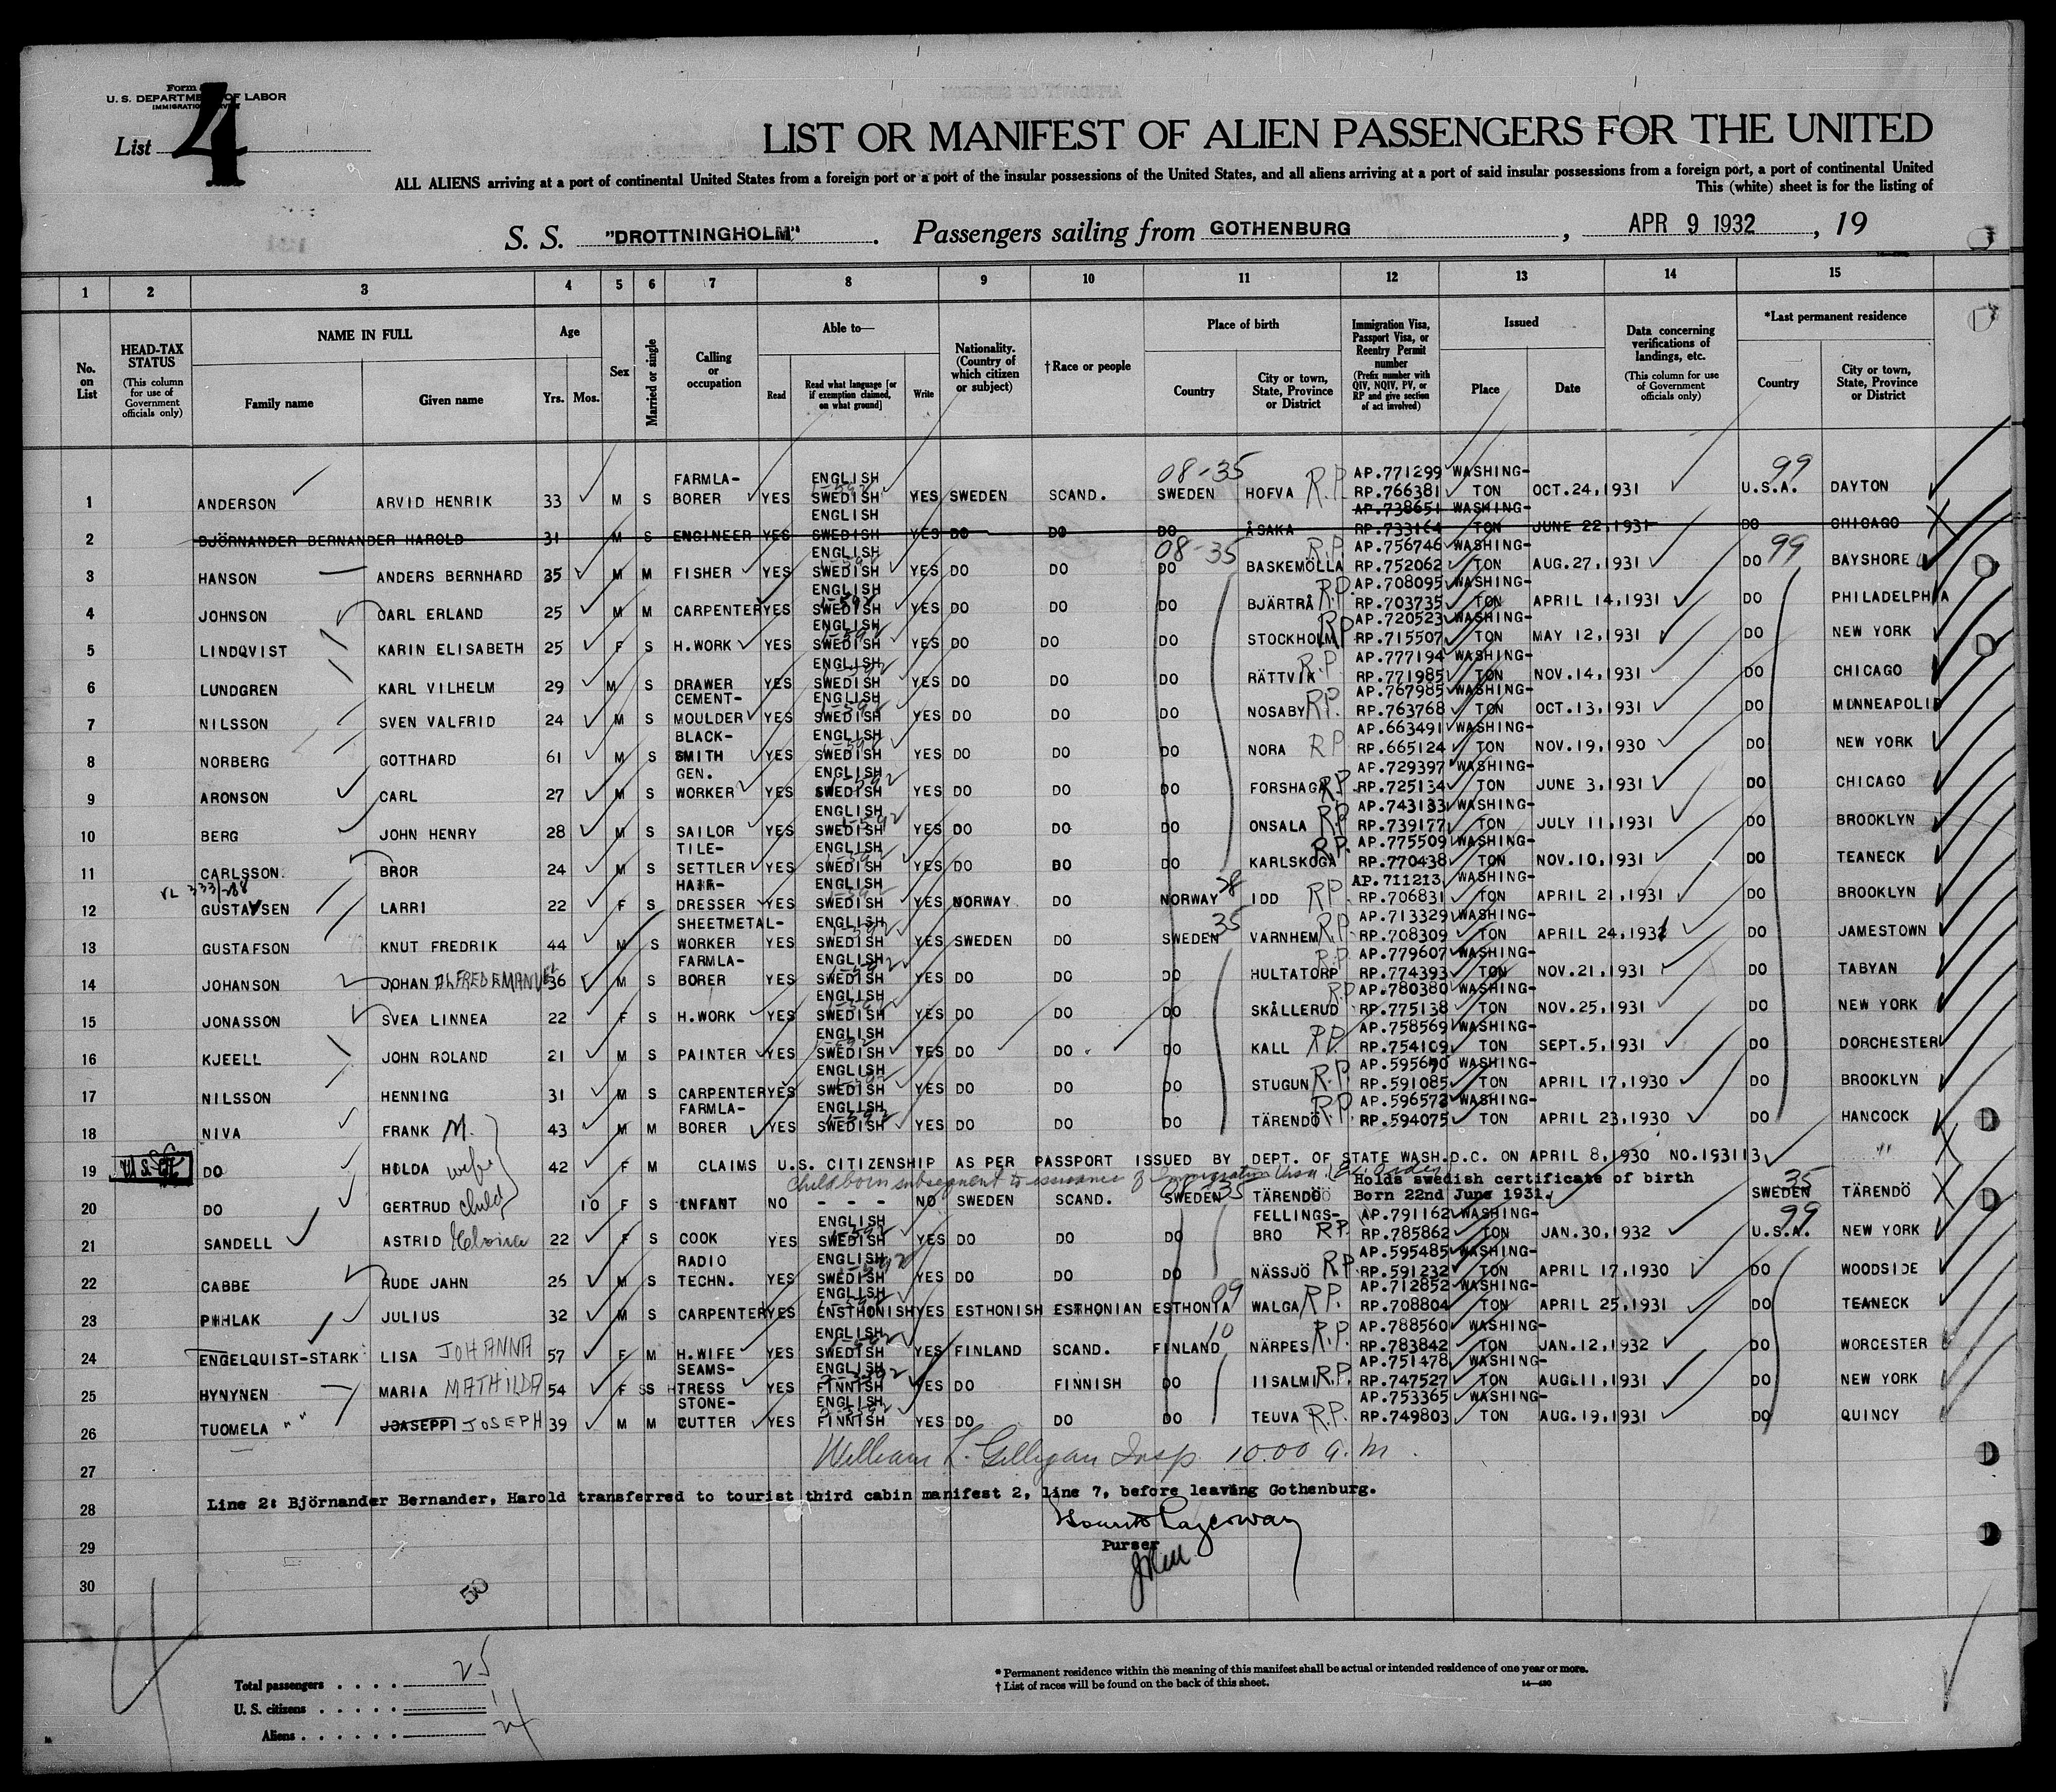 Form
U. S. DEPARTMENT OF LABOR
IMMIGRATION SERVICE
List 4
LIST OR MANIFEST OF ALIEN PASSENGERS FOR THE UNITED
ALL ALIENS arriving at a port of continental United States from a foreign port or a port of the insular possessions of the United States, and all aliens arriving at a port of said insular possessions from a foreign port, a port of continental United
This (white) sheet is for the listing of
S. S. "DROTTNINGHOLM". Passengers sailing from GOTHENBURG, APR 9 1932, 19
1 2 3 4 5 6 7 8 9 10 11 12 13 14 15
No. on List
HEAD-TAX STATUS (This column for use of Government officials only)
NAME IN FULL Family name Given name
Age Yrs. Mos.
Sex
Married or single
Calling or occupation
Able to— Read Read what language [or if exemption claimed, on what ground] Write
Nationality. (Country of which citizen or subject)
†Race or people
Place of birth Country City or town, State, Province or District
Immigration Visa, Passport Visa, or Reentry Permit number (Prefix number with QIV, NQIV, PV, or RP and give section of act involved)
Issued Place Date
Data concerning verifications of landings, etc. (This column for use of Government officials only)
*Last permanent residence Country City or town, State, Province or District
08-35 99
FARMLA- ENGLISH AP.771299 WASHING-
1 ANDERSON ARVID HENRIK 33 M S BORER YES SWEDISH YES SWEDEN SCAND. SWEDEN HOFVA R.P. RP.766381 TON OCT.24,1931 U.S.A. DAYTON
ENGLISH AP.738651 WASHING-
2 BJÖRNANDER BERNANDER HAROLD 31 M S ENGINEER YES SWEDISH YES DO DO DO ÅSAKA RP.733164 TON JUNE 22,1931 DO CHICAGO
ENGLISH 08-35 AP.756746 WASHING- 99
3 HANSON ANDERS BERNHARD 35 M M FISHER YES SWEDISH YES DO DO DO BASKEMÖLLA R.P. RP.752062 TON AUG.27,1931 DO BAYSHORE
ENGLISH AP.708095 WASHING-
4 JOHNSON CARL ERLAND 25 M M CARPENTER YES SWEDISH YES DO DO DO BJÄRTRÅ R.P. RP.703735 TON APRIL 14,1931 DO PHILADELPHIA
ENGLISH AP.720523 WASHING-
5 LINDQVIST KARIN ELISABETH 25 F S H.WORK YES SWEDISH YES DO DO DO STOCKHOLM RP RP.715507 TON MAY 12,1931 DO NEW YORK
ENGLISH AP.777194 WASHING-
6 LUNDGREN KARL VILHELM 29 M S DRAWER YES SWEDISH YES DO DO DO RÄTTVIK R.P. RP.771985 TON NOV.14,1931 DO CHICAGO
CEMENT- ENGLISH AP.767985 WASHING-
7 NILSSON SVEN VALFRID 24 M S MOULDER YES SWEDISH YES DO DO DO NOSABY RP. RP.763768 TON OCT.13,1931 DO MINNEAPOLIS
BLACK- ENGLISH AP.663491 WASHING-
8 NORBERG GOTTHARD 61 M S SMITH YES SWEDISH YES DO DO DO NORA RP RP.665124 TON NOV.19,1930 DO NEW YORK
GEN. ENGLISH AP.729397 WASHING-
9 ARONSON CARL 27 M S WORKER YES SWEDISH YES DO DO DO FORSHAGA RP. RP.725134 TON JUNE 3,1931 DO CHICAGO
ENGLISH AP.743133 WASHING-
10 BERG JOHN HENRY 28 M S SAILOR YES SWEDISH YES DO DO DO ONSALA RP RP.739177 TON JULY 11,1931 DO BROOKLYN
TILE- ENGLISH AP.775509 WASHING-
11 CARLSSON. BROR 24 M S SETTLER YES SWEDISH YES DO DO DO KARLSKOGA R.P. RP.770438 TON NOV.10,1931 DO TEANECK
HAIR- ENGLISH AP.711213 WASHING-
12 GUSTAVSEN LARRI 22 F S DRESSER YES SWEDISH YES NORWAY DO NORWAY IDD RP RP.706831 TON APRIL 21,1931 DO BROOKLYN
SHEETMETAL- ENGLISH 35 AP.713329 WASHING-
13 GUSTAFSON KNUT FREDRIK 44 M S WORKER YES SWEDISH YES SWEDEN DO SWEDEN VARNHEM R.P. RP.708309 TON APRIL 24,1931 DO JAMESTOWN
FARMLA- ENGLISH AP.779607 WASHING-
14 JOHANSON JOHAN ALFRED EMANUEL 36 M S BORER YES SWEDISH YES DO DO DO HULTATORP R.P. RP.774393 TON NOV.21,1931 DO TABYAN
ENGLISH AP.780380 WASHING-
15 JONASSON SVEA LINNEA 22 F S H.WORK YES SWEDISH YES DO DO DO SKÅLLERUD R.P. RP.775138 TON NOV.25,1931 DO NEW YORK
ENGLISH AP.758569 WASHING-
16 KJEELL JOHN ROLAND 21 M S PAINTER YES SWEDISH YES DO DO DO KALL R.P. RP.754109 TON SEPT.5,1931 DO DORCHESTER
ENGLISH AP.595690 WASHING-
17 NILSSON HENNING 31 M S CARPENTER YES SWEDISH YES DO DO DO STUGUN R.P. RP.591085 TON APRIL 17,1930 DO BROOKLYN
FARMLA- ENGLISH AP.596573 WASHING-
18 NIVA FRANK M. 43 M M BORER YES SWEDISH YES DO DO DO TÄRENDÖ R.P. RP.594075 TON APRIL 23,1930 DO HANCOCK
19 DO HULDA wife 42 F M CLAIMS U.S. CITIZENSHIP AS PER PASSPORT ISSUED BY DEPT. OF STATE WASH.D.C. ON APRIL 8,1930 NO.153113 "
Child born subsequent to issuance of Immigration Visa
Holds swedish certificate of birth
20 DO GERTRUD child 10 F S INFANT NO - - - NO SWEDEN SCAND. SWEDEN 35 TÄRENDÖ Born 22nd June 1931. SWEDEN 35 TÄRENDÖ
ENGLISH FELLINGS- AP.791162 WASHING- 99
21 SANDELL ASTRID Elvira 22 F S COOK YES SWEDISH YES DO DO DO BRO RP. RP.785862 TON JAN.30,1932 U.S.A. NEW YORK
RADIO ENGLISH AP.595485 WASHING-
22 CABBE RUDE JAHN 25 M S TECHN. YES SWEDISH YES DO DO DO NÄSSJÖ RP RP.591232 TON APRIL 17,1930 DO WOODSIDE
ENGLISH 09 AP.712852 WASHING-
23 PIHLAK JULIUS 32 M S CARPENTER YES ENSTHONISH YES ESTHONISH ESTHONIAN ESTHONIA WALGA R.P. RP.708804 TON APRIL 25,1931 DO TEANECK
ENGLISH 10 AP.788560 WASHING-
24 ENGELQUIST-STARK LISA JOHANNA 57 F M H.WIFE YES SWEDISH YES FINLAND SCAND. FINLAND NÄRPES R.P. RP.783842 TON JAN.12,1932 DO WORCESTER
SEAMS- ENGLISH AP.751478 WASHING-
25 HYNYNEN MARIA MATHILDA 54 F S TRESS YES FINNISH YES DO FINNISH DO IISALMI R.P. RP.747527 TON AUG.11,1931 DO NEW YORK
STONE- ENGLISH AP.753365 WASHING-
26 TUOMELA JOASEPPI JOSEPH 39 M M CUTTER YES FINNISH YES DO DO DO TEUVA R.P. RP.749803 TON AUG.19,1931 DO QUINCY
27 William L. Gilligan Insp. 10.00 a.m.
28 Line 2: Björnander Bernander, Harold transferred to tourist third cabin manifest 2, line 7, before leaving Gothenburg.
29 Purser
30
50
Total passengers . . . . 25
U. S. citizens . . . . . 1
Aliens . . . . . . 24
* Permanent residence within the meaning of this manifest shall be actual or intended residence of one year or more.
† List of races will be found on the back of this sheet.
14—480